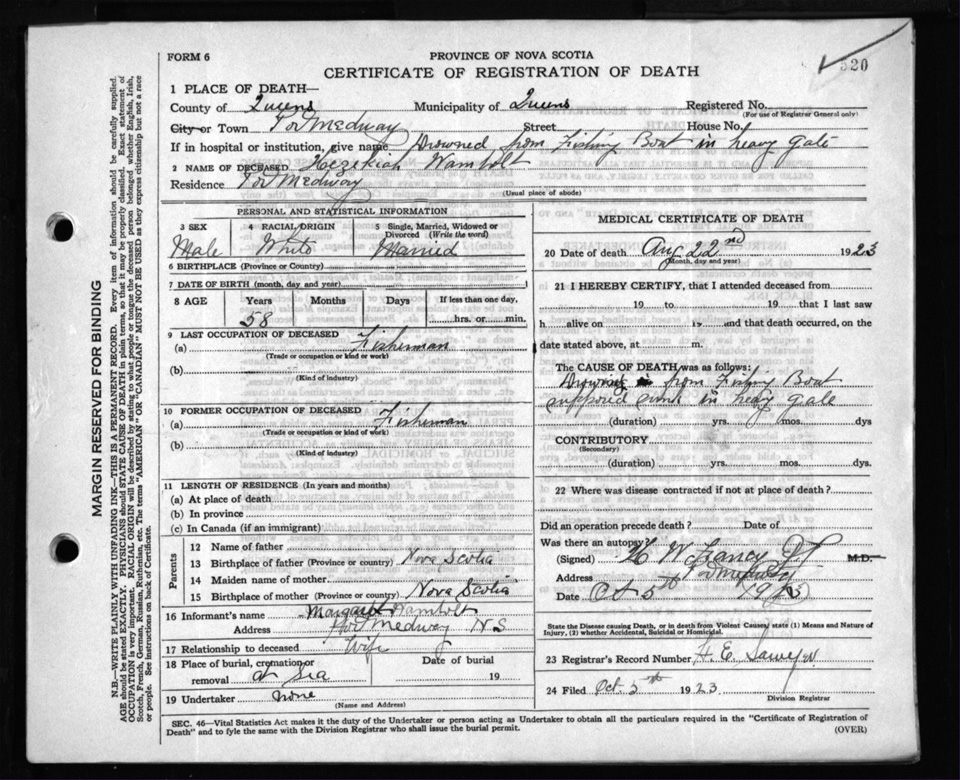 FORM 6
PROVINCE OF NOVA SCOTIA
320
CERTIFICATE OF REGISTRATION OF DEATH
1 PLACE OF DEATH—
County of Queens Municipality of Queens Registered No.
(For use of Registrar General only)
City or Town Port Medway Street House No.
If in hospital or institution, give name Drowned from Fishing Boat in heavy gale
2 NAME OF DECEASED Hezekiah Wambolt
Residence Port Medway
(Usual place of abode)
PERSONAL AND STATISTICAL INFORMATION
3 SEX 4 RACIAL ORIGIN 5 Single, Married, Widowed or Divorced (Write the word)
Male White Married
6 BIRTHPLACE (Province or Country)
7 DATE OF BIRTH (month, day and year)
8 AGE Years Months Days If less than one day,
58 hrs. or min.
9 LAST OCCUPATION OF DECEASED
(a) Fisherman
(Trade or occupation or kind or work)
(b)
(Kind of industry)
10 FORMER OCCUPATION OF DECEASED
(a) Fisherman
(Trade or occupation or kind of work)
(b)
(Kind of industry)
11 LENGTH OF RESIDENCE (In years and months)
(a) At place of death
(b) In province
(c) In Canada (if an immigrant)
Parents
12 Name of father
13 Birthplace of father (Province or country) Nova Scotia
14 Maiden name of mother
15 Birthplace of mother (Province or country) Nova Scotia
16 Informant's name Margaret Wambolt
Address Port Medway N S
17 Relationship to deceased Wife
18 Place of burial, cremation or removal at Sea Date of burial 19
19 Undertaker none
(Name and Address)
MEDICAL CERTIFICATE OF DEATH
20 Date of death Aug 22nd 1923
(Month, day and year)
21 I HEREBY CERTIFY, that I attended deceased from
19 to 19 that I last saw
h alive on 19 and that death occurred, on
date stated above, at m.
The CAUSE OF DEATH was as follows:
Drowned from Fishing Boat
supposed in heavy gale
(duration) yrs. mos. dys
CONTRIBUTORY
(Secondary)
(duration) yrs. mos. dys.
22 Where was disease contracted if not at place of death?
Did an operation precede death? Date of
Was there an autopsy
(Signed) H W M.D.
Address Port Medway
Date Oct 5th 1923
State the Disease causing Death, or in death from Violent Causes, state (1) Means and Nature of
Injury, (2) whether Accidental, Suicidal or Homicidal.
23 Registrar's Record Number H. E.
24 Filed Oct 5th 1923
Division Registrar
SEC. 46—Vital Statistics Act makes it the duty of the Undertaker or person acting as Undertaker to obtain all the particulars required in the "Certificate of Registration of
Death" and to fyle the same with the Division Registrar who shall issue the burial permit.
(OVER)
MARGIN RESERVED FOR BINDING
N.B.—WRITE PLAINLY WITH UNFADING INK.—THIS IS A PERMANENT RECORD. Every item of information should be carefully supplied.
AGE should be stated EXACTLY. PHYSICIANS should STATE CAUSE OF DEATH in plain terms, so that it may be properly classified. Exact statement of
OCCUPATION is very important. RACIAL ORIGIN will be described by stating to what people or tongue the deceased person belonged whether English, Irish,
Scotch, French, German, Russian, Ruthenian, etc. The terms "AMERICAN" OR "CANADIAN" MUST NOT BE USED as they express citizenship but not a race
or people. See instructions on back of Certificate.